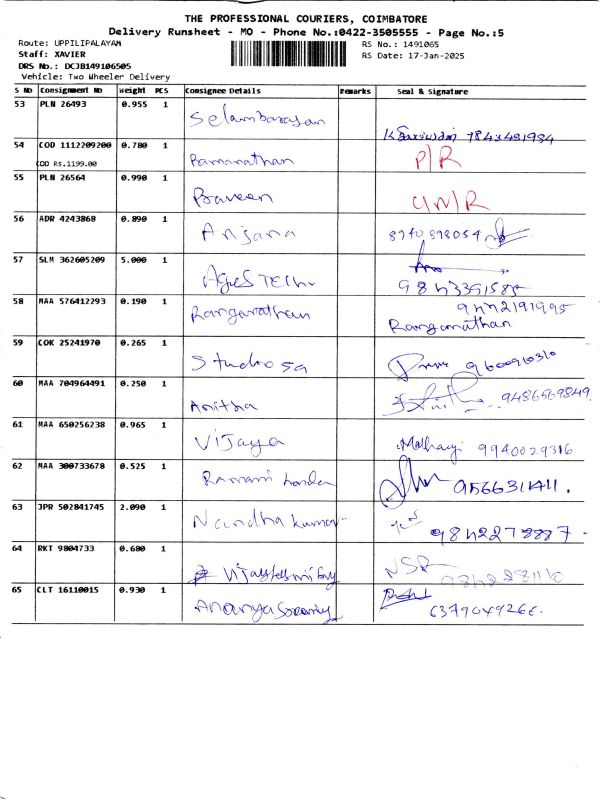 THE PROFESSIONAL COURIERS, COIMBATORE
Delivery Runsheet - MO - Phone No.:0422-3505555 - Page No.:5
Route: UPPILIPALAYAM RS No.: 1491065
Staff: XAVIER RS Date: 17-Jan-2025
DRS No.: DCJB149106505
Vehicle: Two Wheeler Delivery
S NO Consignment NO Weight PCS Consignee Details Remarks Seal & Signature
53 PLN 26493 0.955 1
7843481984
54 COD 1112209200 0.780 1 Ramanathan P/R
COD Rs.1199.00
55 PLN 26564 0.990 1 Praveen
56 ADR 4243868 0.890 1 Anjana 8940898054
57 SLM 362605209 5.000 1 TECH
58 MAA 576412293 0.190 1 Ranganathan
Ranganathan
59 COK 25241970 0.265 1 Studio
60 MAA 704964491 0.250 1 Anitha 9486569849.
61 MAA 650256238 0.965 1 Vijaya 9940029316
62 MAA 300733678 0.525 1
63 JPR 502841745 2.090 1 Nandhakumar
64 RKT 9804733 0.680 1 NSR
65 CLT 16110015 0.930 1 6379049266.